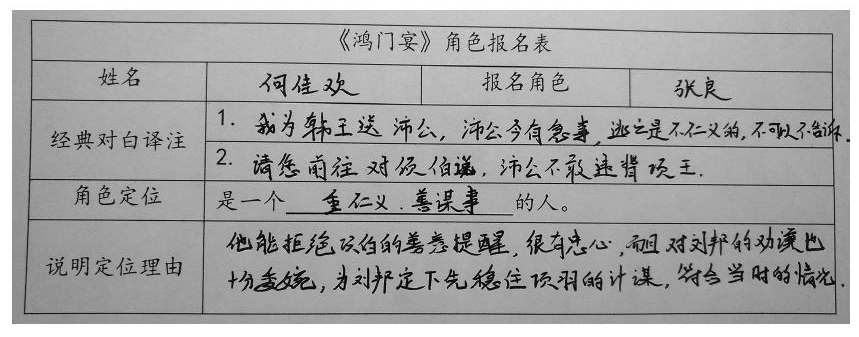 《鸿门宴》角色报名表
姓名 何佳欢 报名角色 张良
经典对白译注
1. 我为韩王送沛公，沛公今有急事，逃亡是不仁义的，不可以不告诉.
2. 请您前往对项伯说，沛公不敢违背项王.
角色定位 是一个 重仁义.善谋事 的人。
说明定位理由
他能拒绝项伯的善意提醒，很有忠心，而且对刘邦的劝谏也
十分委婉，为刘邦定下先稳住项羽的计谋，符合当时的情况.